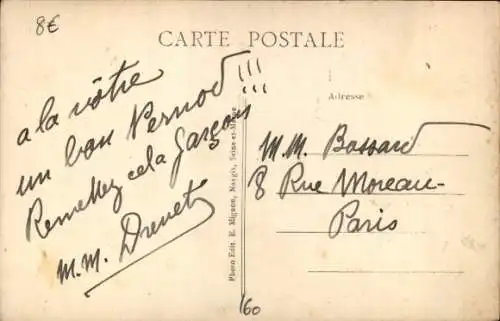 8€
CARTE POSTALE
Adresse
a la vôtre
un bon Pernod !!!
Remettez cela garçon
M.M. Drenet
Photo Edit. E. Mignon, Nangis, Seine-et-Marne
M.M. Bossard
8 Rue Moreau-
Paris
160